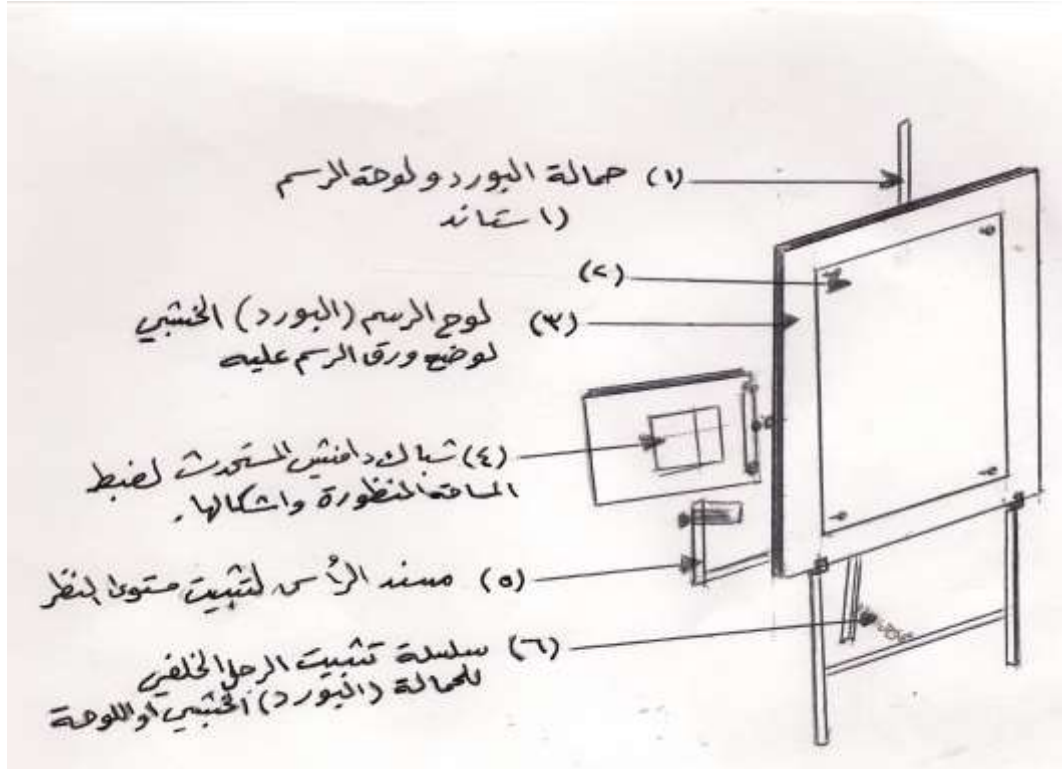 (١) حمالة البورد و لوحة الرسم
(استاند
(٢)
(٣) لوح الرسم (البورد) الخشبي
لوضع ورق الرسم عليه
(٤) شباك دافنشي المستحدث لضبط
المسافة المنظورة واشكالها .
(٥) مسند الرأس لتثبيت مستوى النظر
(٦) سلسلة تثبيت الرجل الخلفي
للحمالة (البورد) الخشبي او اللوحة